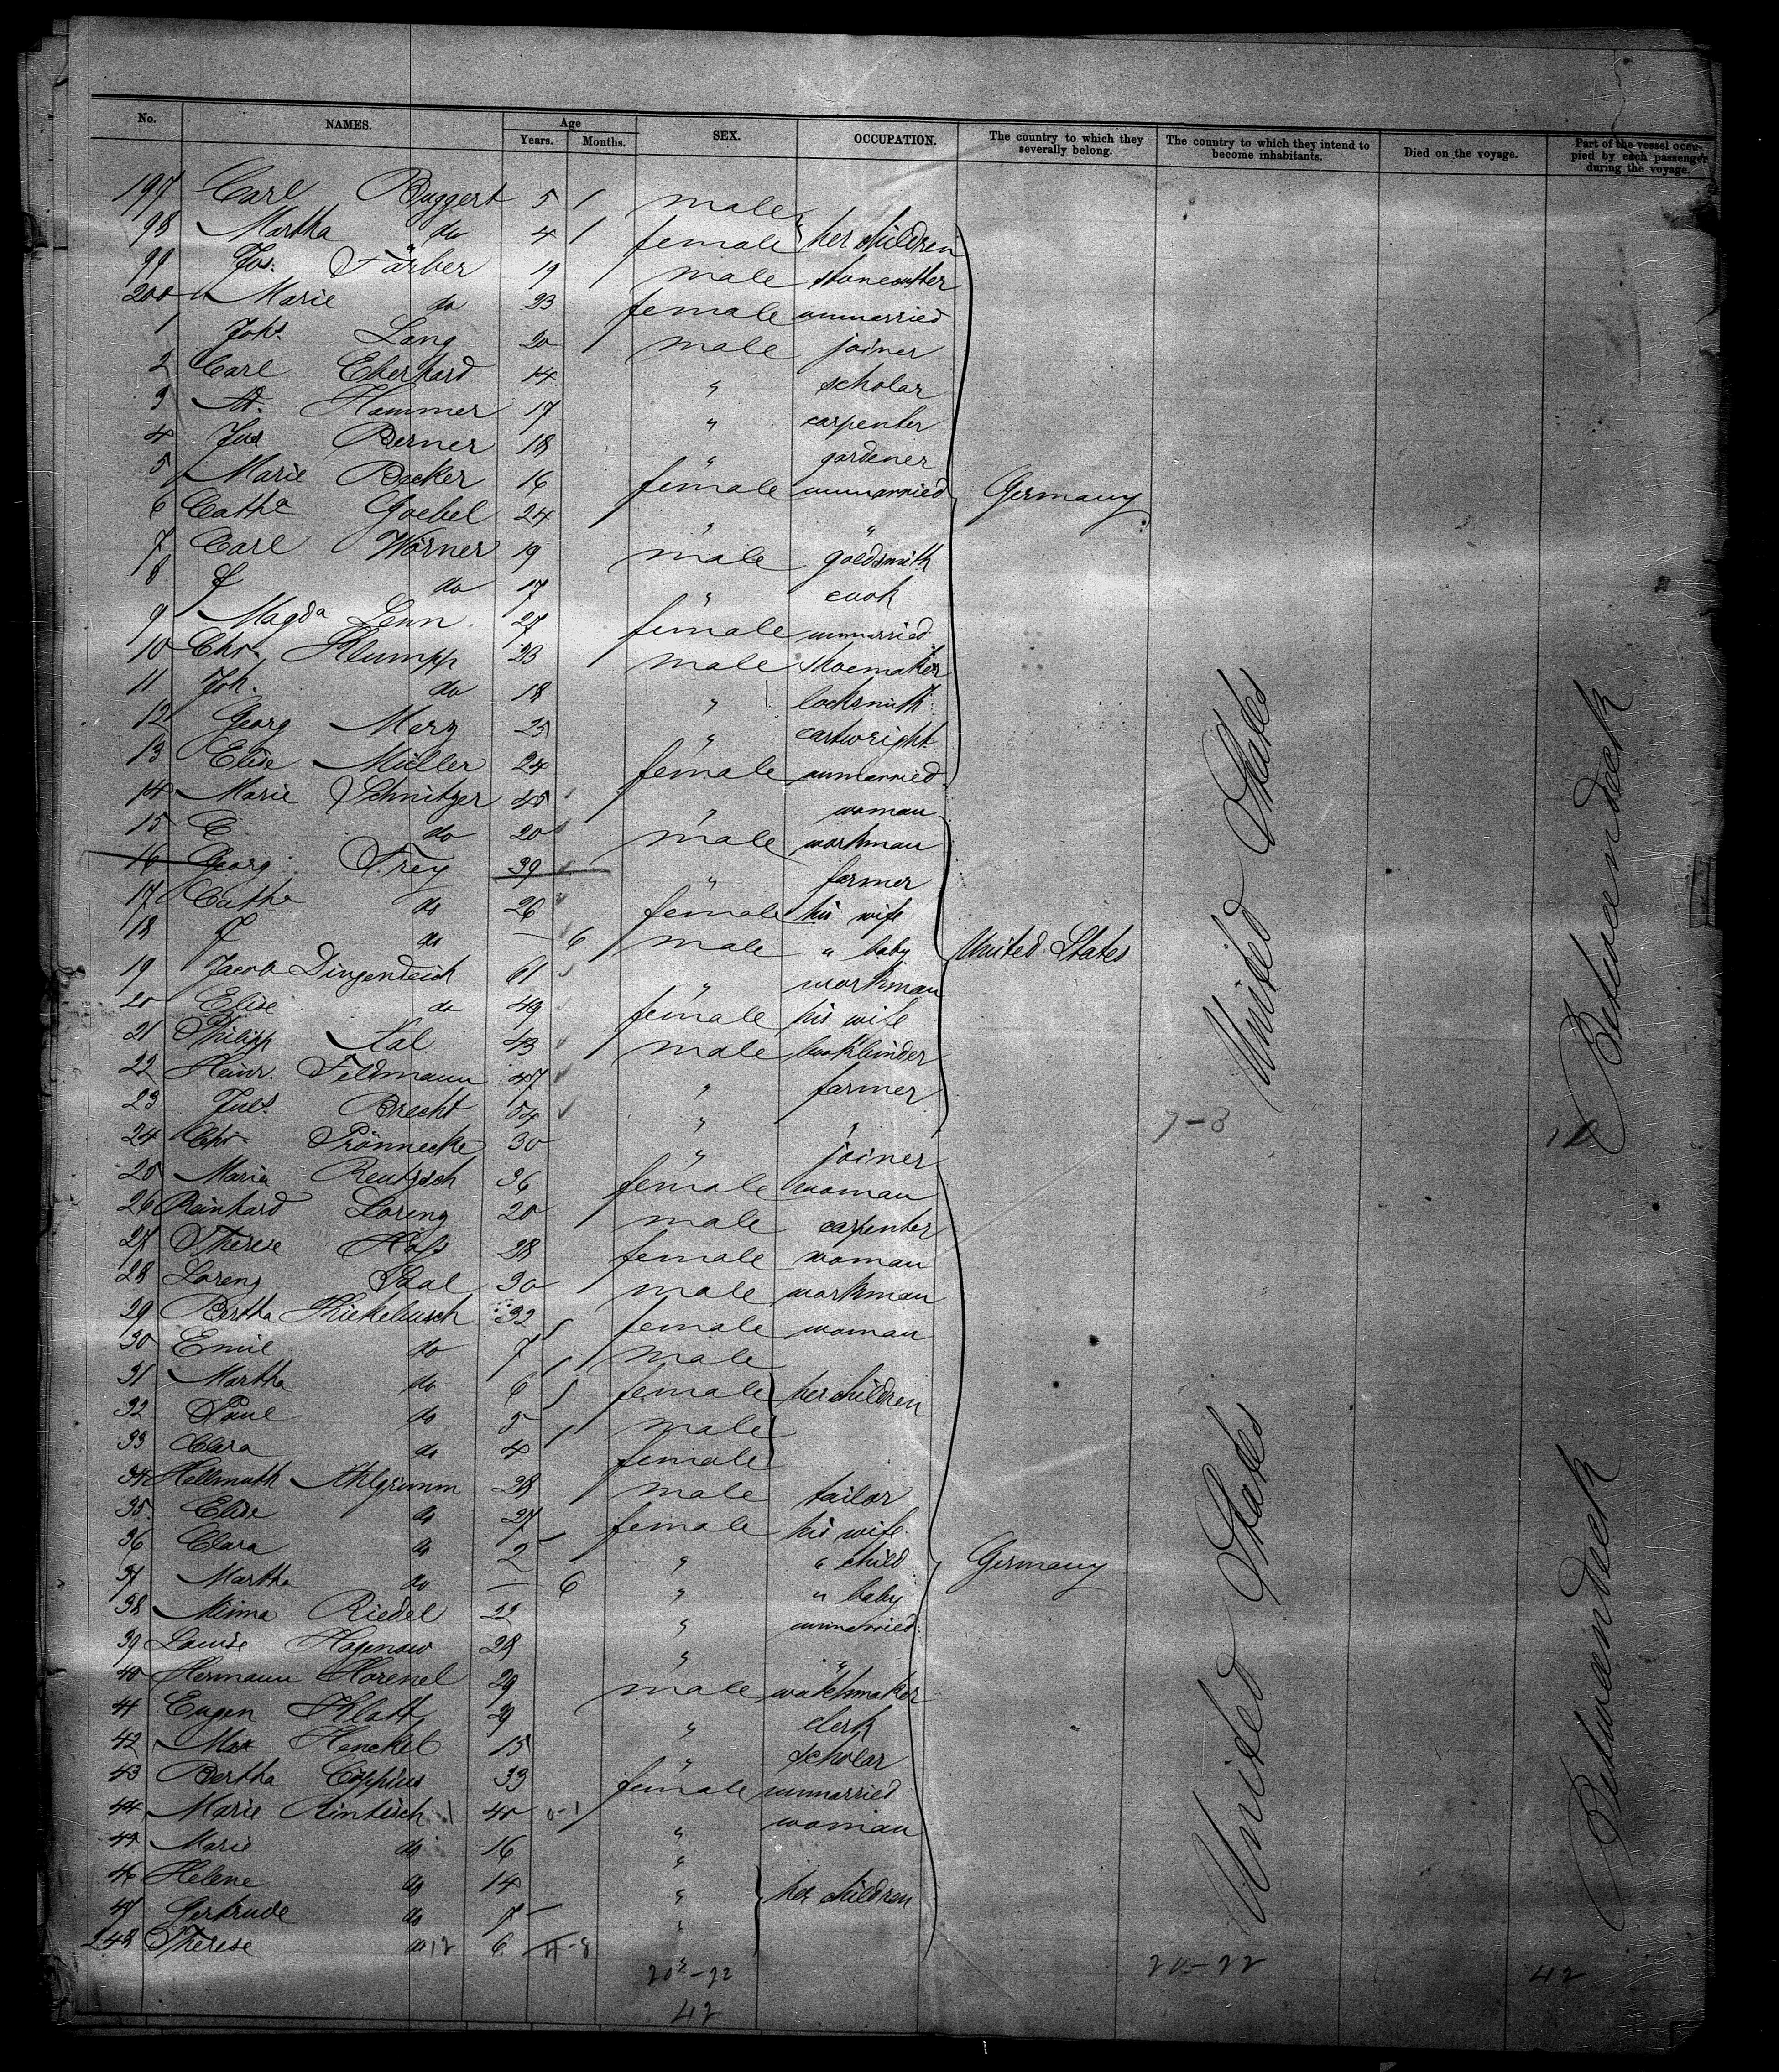 No. NAMES. Age Years. Months. SEX. OCCUPATION. The country to which they severally belong. The country to which they intend to become inhabitants. Died on the voyage. Part of the vessel occupied by each passenger during the voyage.
197 Carl Buggert 5 male
98 Martha do 4 female her children
99 Jos. Färber 19 male stonecutter
200 Marie do 23 female unmarried
1 Johs Lang 20 male joiner
2 Carl Eberhard 14 " scholar
3 Hammer 17 " carpenter
4 Jos Berner 18 " gardener
5 Marie Becker 16 female unmarried Germany
6 Catha Goebel 24 " "
7 Carl Wörner 19 male goldsmith
8 do 17 " cook
9 Magda Lenn 27 female unmarried
10 Chr. Klumpp 23 male shoemaker
11 Joh. do 18 " locksmith
12 Georg Merz 25 " cartwright
13 Elise Müller 24 female unmarried
14 Marie Schnitzer 45 " woman
15 E do 20 male workman
16 Georg Frey 39 " farmer
17 Catha do 26 female his wife
18 do — 6 male " baby United States United States Betweendeck
19 Jacob Dingendeich 61 " workman
20 Elise do 49 female his wife
21 Philipp Aal 43 male bookbinder
22 Heinr. Feldmann 47 " farmer
23 Juls. Brecht 54 " "
7-3
10
24 Chr. Prönnecke 30 " joiner
25 Maria Rentzsch 36 female woman
26 Reinhard Lorenz 20 male carpenter
27 Therese Höfs 28 female woman
28 Lorenz Saal 30 male workman
29 Bertha Kiekebusch 32 female woman
30 Emil do 7 male
31 Martha do 6 female her children
32 Paul do 5 male
33 Clara do 4 female
34 Hellmuth Ahlgrimm 28 male tailor
35 Elise do 27 female his wife
36 Clara do 2 " " child Germany
37 Martha do — 6 " " baby
38 Minna Riedel 22 " unmarried
39 Louise Hagenow 28 " "
40 Hermann Horenel 29 male watchmaker
41 Eugen Klatt 29 " clerk United States Betweendeck
42 Max Henckel 15 " scholar
43 Bertha Cöppius 33 female unmarried
44 Marie Rintisch 40 " woman
45 Marie do 16 "
46 Helene do 14 " her children
47 Gertrude do 7 "
248 Therese do 12 6
20-22
20-22
42
42